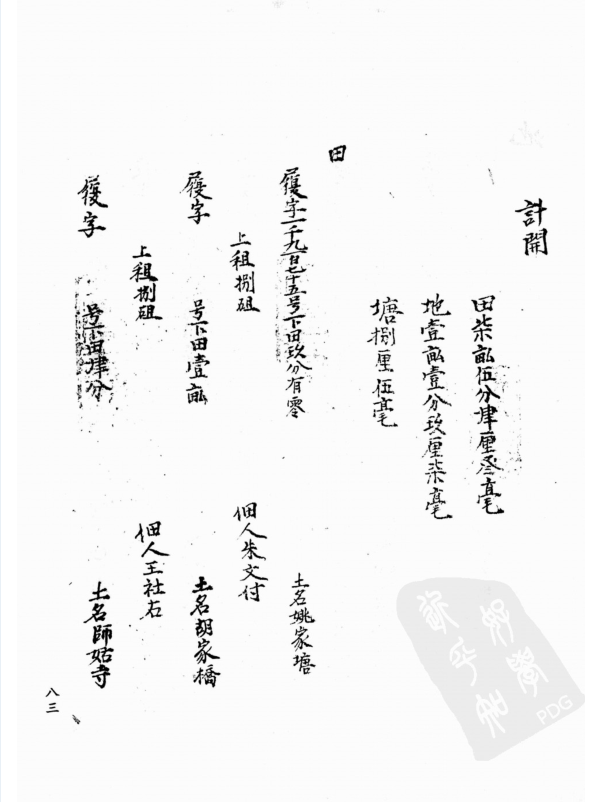 計開
田柒畝伍分肆厘叁毫
地壹畝壹分玖厘柒毫
塘捌厘伍毫
田
履字一千九百七十五号下田玖分有零 土名姚家塘
上租捌砠 佃人朱文付
履字 号下田壹畝 土名胡家橋
上租捌砠 佃人王社右
履字 号下田肆分 土名師姑寺
八三
PDG